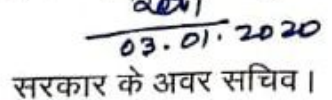 03.01.2020
सरकार के अवर सचिव।